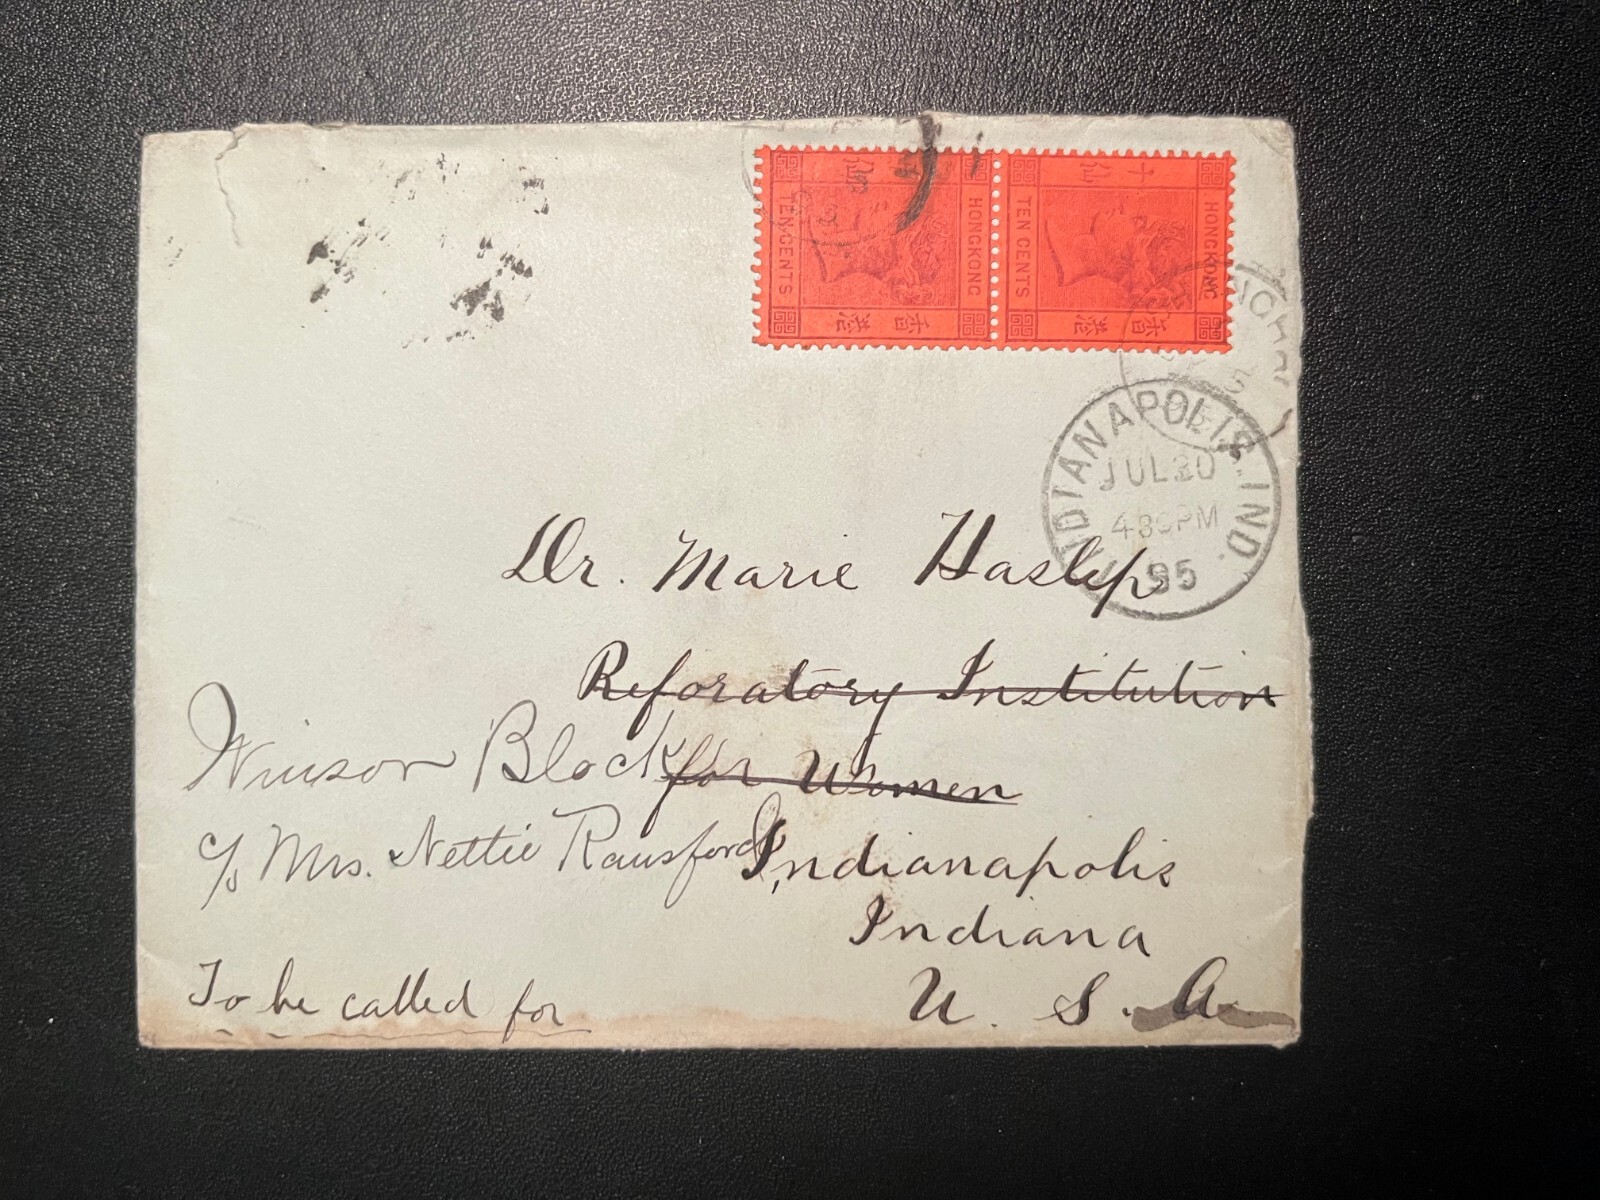 十仙
HONGKONG
TEN CENTS
香港
仙
HONGKONG
TEN CENTS
香港
INDIANAPOLIS. IND.
JUL 20
430PM
95
Dr. Marie Haslep
Reforatory Institution
for Women
Indianapolis
Indiana
U. S. A.
Block
c/o Mrs. Nettie Ransford
To be called for